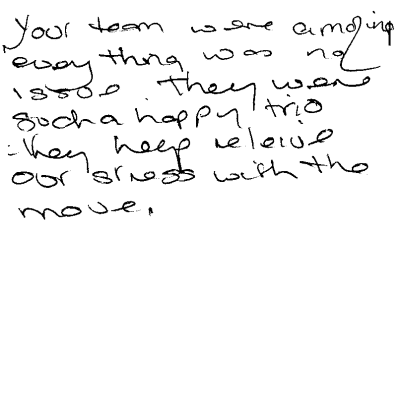 Your team were amazing
every thing was no
issue. they were
such a happy trio
they help releive
our stress with the
move.